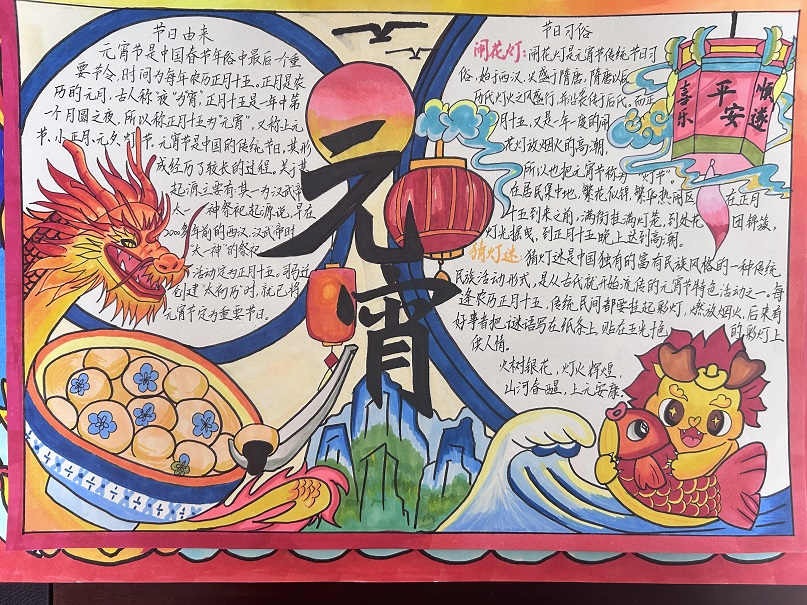 节日由来
元宵节是中国春节年俗中最后一个重
要节令,时间为每年农历正月十五,正月是农
历的元月,古人称"夜"为"宵",正月十五是一年中第
一个月圆之夜,所以称正月十五为"元宵",又称上元
节、小正月、元夕 节,元宵节是中国的传统节日,其形
成经历了较长的过程。关于其
起源主要有其一为汉武帝
太一 神祭祀起源说,早在
2000多年前的西汉,汉武帝时
太一神"的祭祀
活动定为正月十五。司马迁
创建"太初历"时,就已将
元宵节定为重要节日。
元宵
节日习俗
闹花灯:闹花灯是元宵节传统节日习
俗,始于西汉,兴盛于隋唐,隋唐以后,
历代灯火之风盛行,并沿袭传于后代,而正
月十五,又是一年一度的闹
花灯放烟火的高潮,
所以也把元宵节称为"灯节"。
在居民集中地,繁花似锦,繁华热闹区 在正月
十五到来之前,满街挂满灯花,到处花 团锦簇,
灯光摇曳,到正月十五晚上达到高潮。
猜灯谜:猜灯谜是中国独有的富有民族风格的一种传统
民族活动形式,是从古代就开始流传的元宵节特色活动之一。每
逢农历正月十五,传统民间都要挂起彩灯,燃放烟火,后来有
好事者把谜语写在纸条上,贴在五光十色 的彩灯上
供人猜。
火树银花,灯火辉煌,
山河春醒,上元安康。
喜乐
平安
顺遂